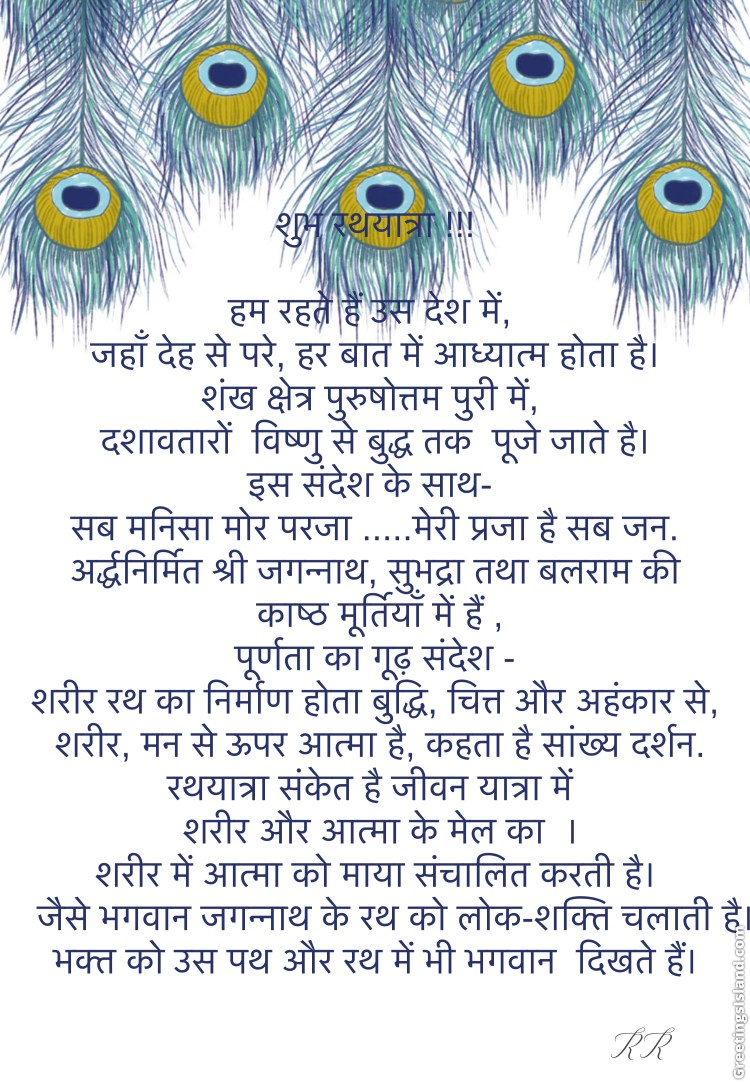 शुभ रथयात्रा !!!
हम रहते हैं उस देश में,
जहाँ देह से परे, हर बात में आध्यात्म होता है।
शंख क्षेत्र पुरुषोत्तम पुरी में,
दशावतारों विष्णु से बुद्ध तक पूजे जाते है।
इस संदेश के साथ-
सब मनिसा मोर परजा .....मेरी प्रजा है सब जन.
अर्द्धनिर्मित श्री जगन्नाथ, सुभद्रा तथा बलराम की
काष्ठ मूर्तियाँ में हैं ,
पूर्णता का गूढ़ संदेश -
शरीर रथ का निर्माण होता बुद्धि, चित्त और अहंकार से,
शरीर, मन से ऊपर आत्मा है, कहता है सांख्य दर्शन.
रथयात्रा संकेत है जीवन यात्रा में
शरीर और आत्मा के मेल का ।
शरीर में आत्मा को माया संचालित करती है।
जैसे भगवान जगन्नाथ के रथ को लोक-शक्ति चलाती है।
भक्त को उस पथ और रथ में भी भगवान दिखते हैं।
RR
GreetingsIsland.com